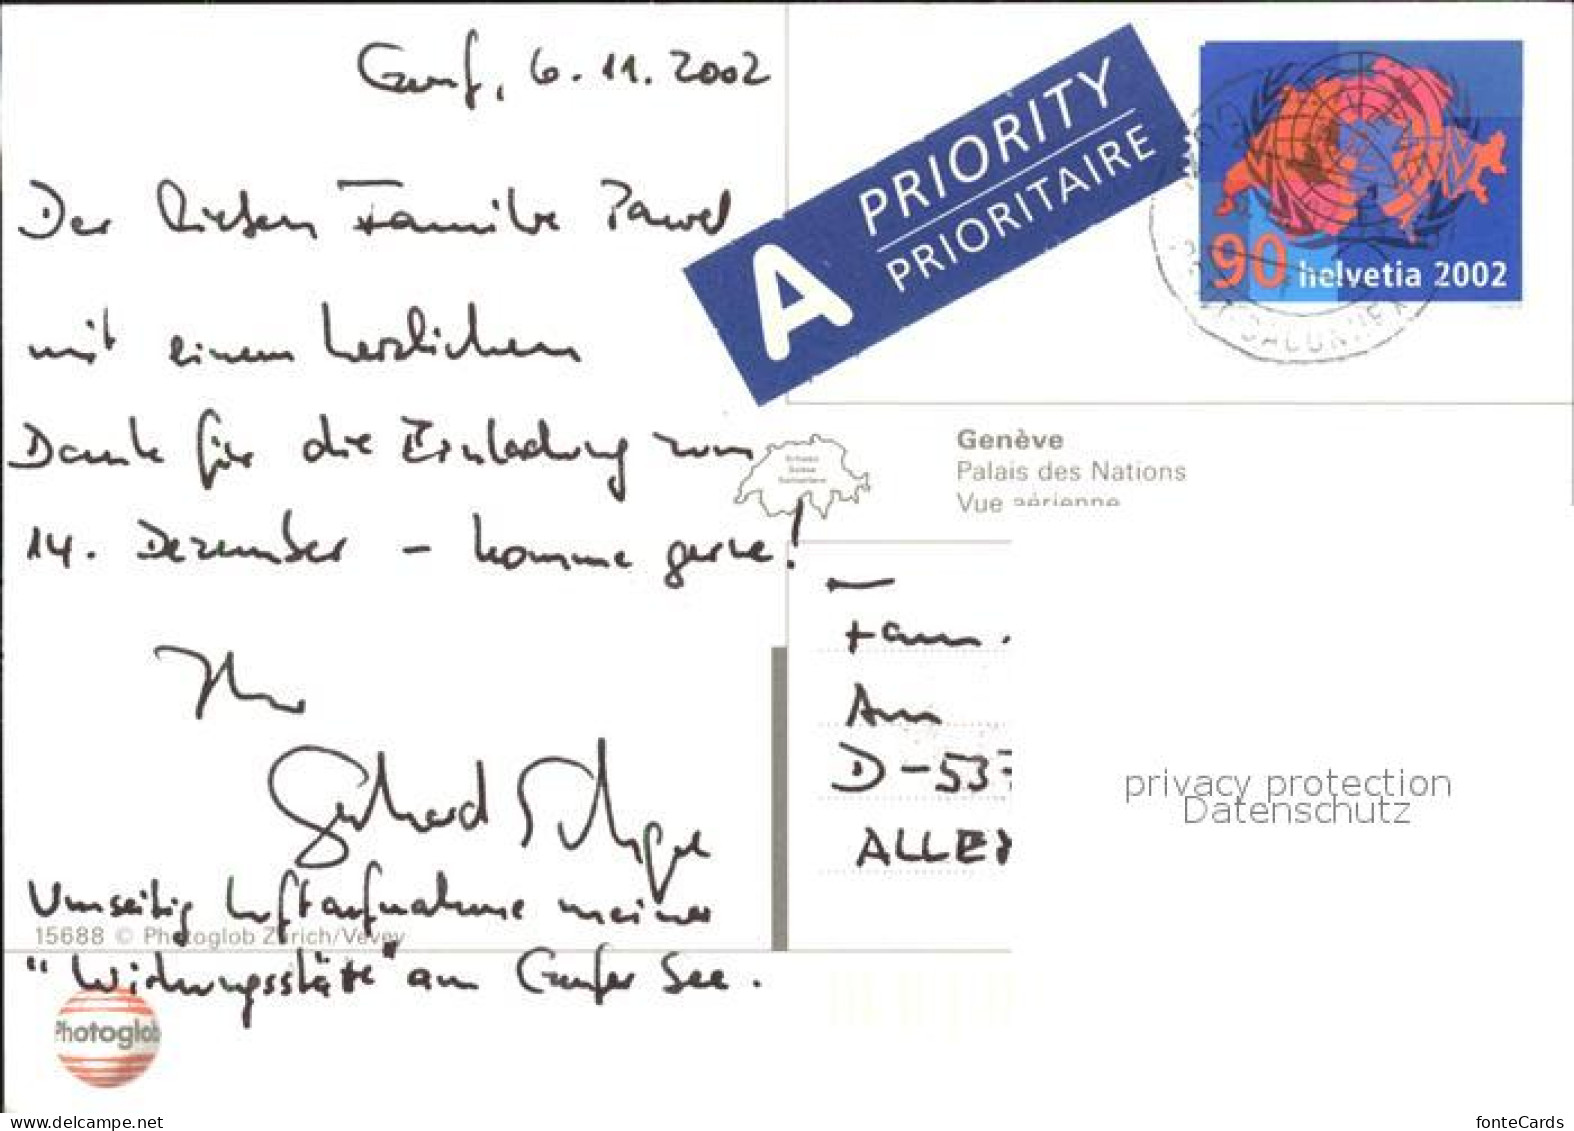 Genf, 6.11.2002
Der lieben Familie Pawel
mit einem herzlichen
Dank für die Einladung zum
14. Dezember – komme gerne!
Ihr
Gerhard
Umseitig Luftaufnahme meiner
"Wirkungsstätte" am Genfer See.
15688 © Photoglob Zürich/Vevey
Photoglob
A PRIORITY
PRIORITAIRE
90 helvetia 2002
Genève
Palais des Nations
Vue aérienne
Schweiz
Suisse
Switzerland
Fam.
Am
D-537
ALLEM
privacy protection
Datenschutz
www.delcampe.net
fonteCards